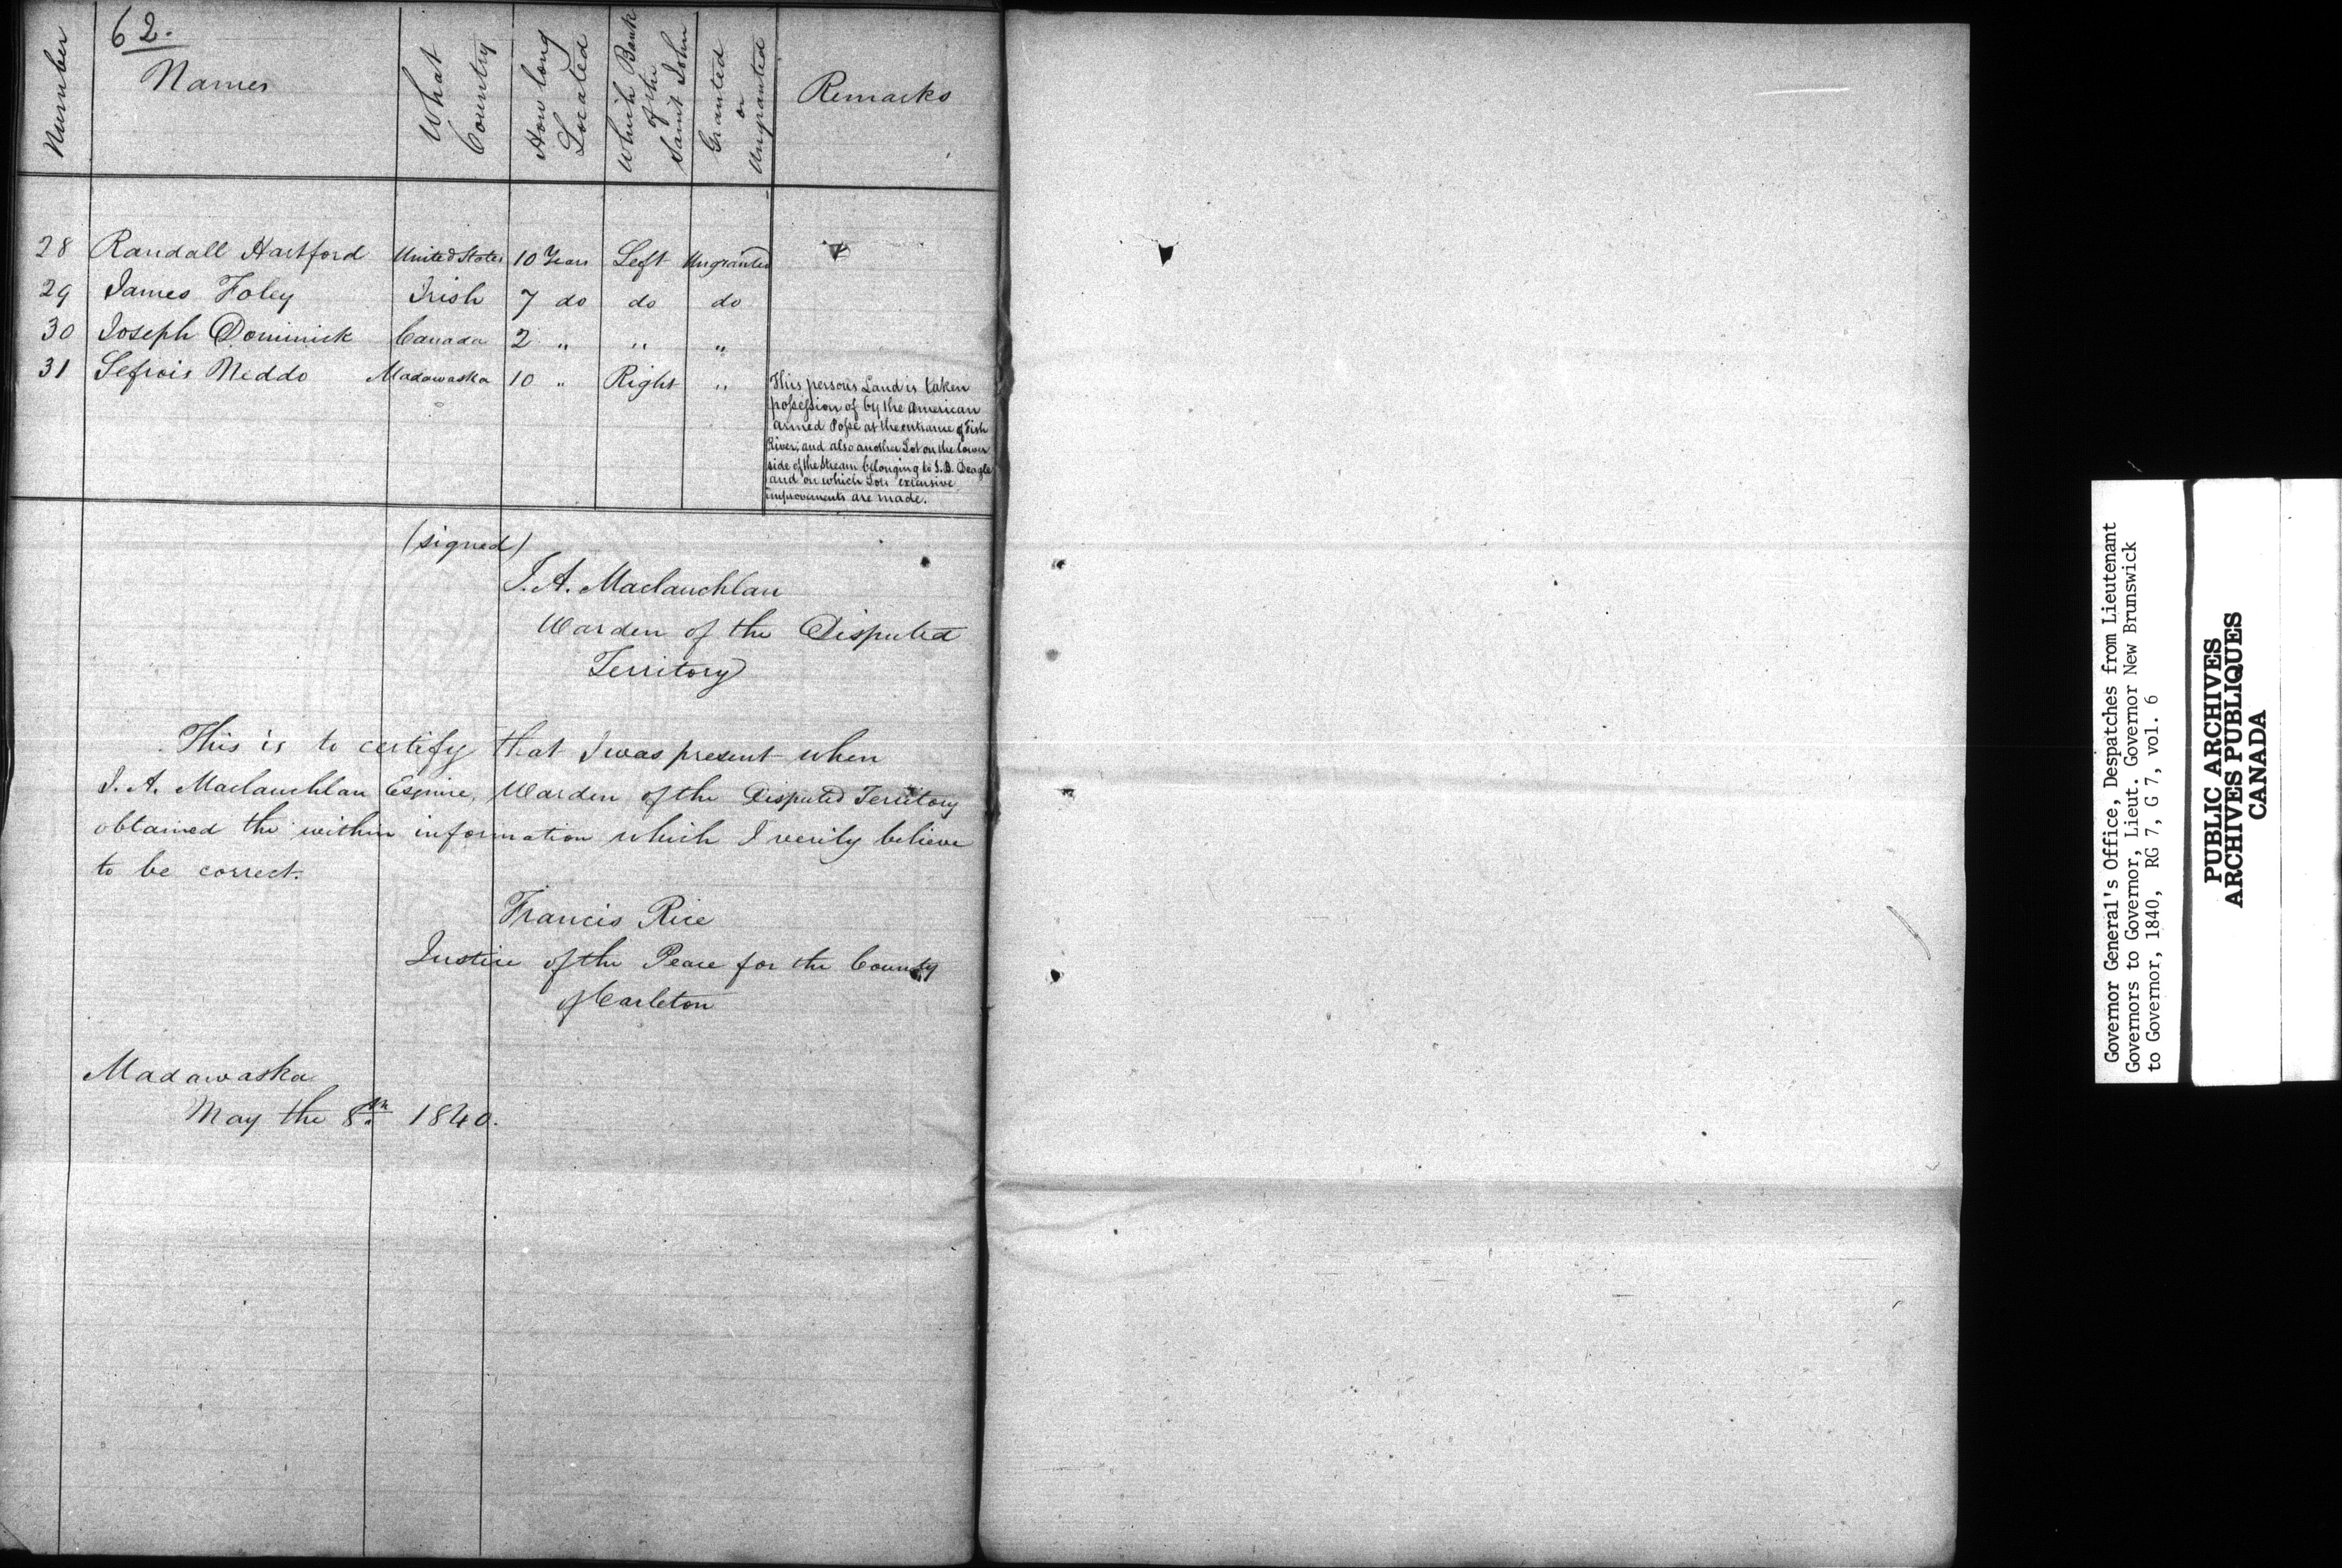 62.
Number
Names
What Country
How long Located
Which Bank of the Saint John
Granted or Ungranted
Remarks
28 Randall Hartford United States 10 Years Left Ungranted
29 James Foley Irish 7 do do do
30 Joseph Dominick Canada 2 " " "
31 Sefrois Neddo Madawaska 10 " Right "
This persons Land is taken
possession of by the American
armed Posse at the entrance of Fish
River, and also another Lot on the lower
side of the Stream belonging to S.B. Deagle
and on which Lots extensive
improvements are made.
(signed)
J. A. Maclauchlan
Warden of the Disputed
Territory
This is to certify that I was present when
J. A. Maclauchlan Esquire, Warden of the Disputed Territory
obtained the within information which I verily believe
to be correct.
Francis Rice
Justice of the Peace for the County
of Carleton
Madawaska
May the 8th 1840.
Governor General's Office, Despatches from Lieutenant
Governors to Governor, Lieut. Governor New Brunswick
to Governor, 1840, RG 7, G 7, vol. 6
PUBLIC ARCHIVES
ARCHIVES PUBLIQUES
CANADA